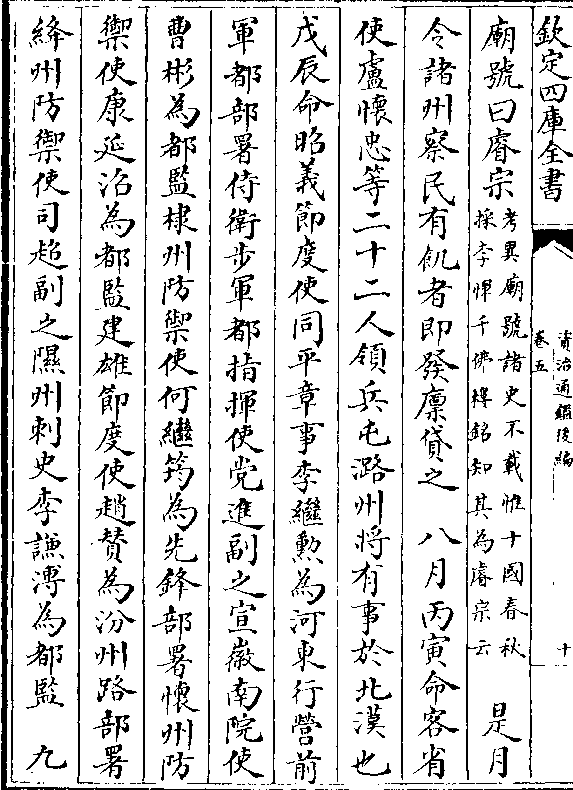 欽定四庫全書
資治通鑑後編
卷五
十
廟號曰睿宗考異廟號諸史不載惟十國春秋
採李惲千佛樓銘知其為睿宗云　是月
令諸州察民有飢者即發廪貸之　八月丙寅命客省
使盧懷忠等二十二人領兵屯潞州将有事於北漢也
戊辰命昭義節度使同平章事李繼勲為河東行營前
軍都部署侍衛步軍都指揮使党進副之宣徽南院使
曹彬為都監棣州防禦使何繼筠為先鋒部署懷州防
禦使康延沼為都監建雄節度使趙賛為汾州路部署
絳州防禦使司超副之隰州刺史李謙溥為都監　九